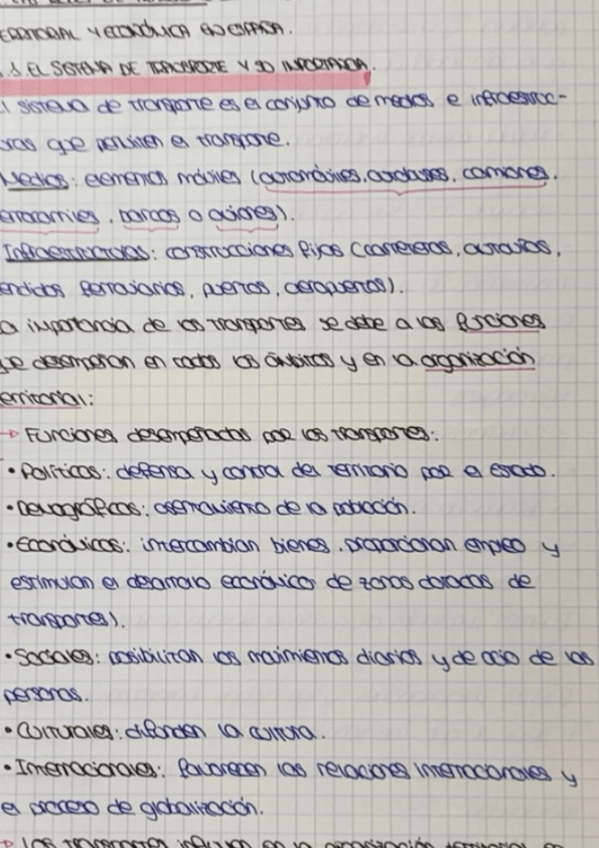 ERRITORIAL Y ECONÓMICA EN ESPAÑA.
1. EL SISTEMA DE TRANSPORTE Y SU IMPORTANCIA.
l sistema de transporte es el conjunto de medios e infraestruc-
uras que permiten el transporte.
Medios: elementos móviles (automóviles, autobuses, camiones,
errocarriles, barcos o aviones).
Infraestructuras: construcciones fijas (carreteras, autovías,
endidos ferroviarios, puertos, aeropuertos).
a importancia de los transportes se debe a las funciones
ue desempeñan en todos los ámbitos y en la organización
erritorial:
→ Funciones desempeñadas por los transportes:
• Políticas: defensa y control del territorio por el estado.
• Demográficas: asentamiento de la población.
• Económicas: intercambian bienes, proporcionan empleo y
estimulan el desarrollo económico de zonas dotadas de
transportes).
• Sociales: posibilitan los movimientos diarios y de ocio de las
personas.
• Culturales: difunden la cultura.
• Internacionales: favorecen las relaciones internacionales y
el proceso de globalización.
→ Los transportes influyen en la organización territorial en